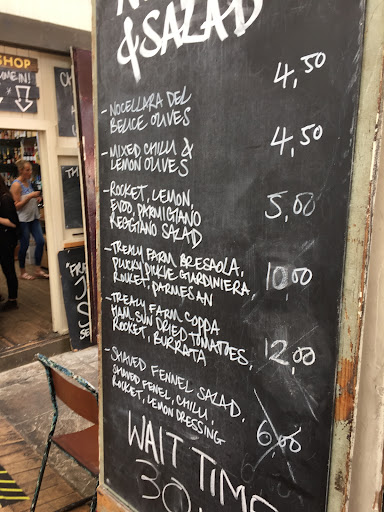 & SALAD
SHOP
- NOCELLARA DEL
BELICE OLIVES 4,50
- MIXED CHILLI &
LEMON OLIVES 4,50
- ROCKET, LEMON,
EVOO, PARMIGIANO
REGGIANO SALAD 5,00
- TREALY FARM BRESAOLA,
PLUCKY PICKLE GIARDINIERA,
ROCKET, PARMESAN 10,00
- TREALY FARM COPPA
HAM, SUN DRIED TOMATOES,
ROCKET, BURRATA 12,00
- SHAVED FENNEL SALAD,
SHAVED FENEL, CHILLI,
ROCKET, LEMON DRESSING 6,00
WAIT TIME
30